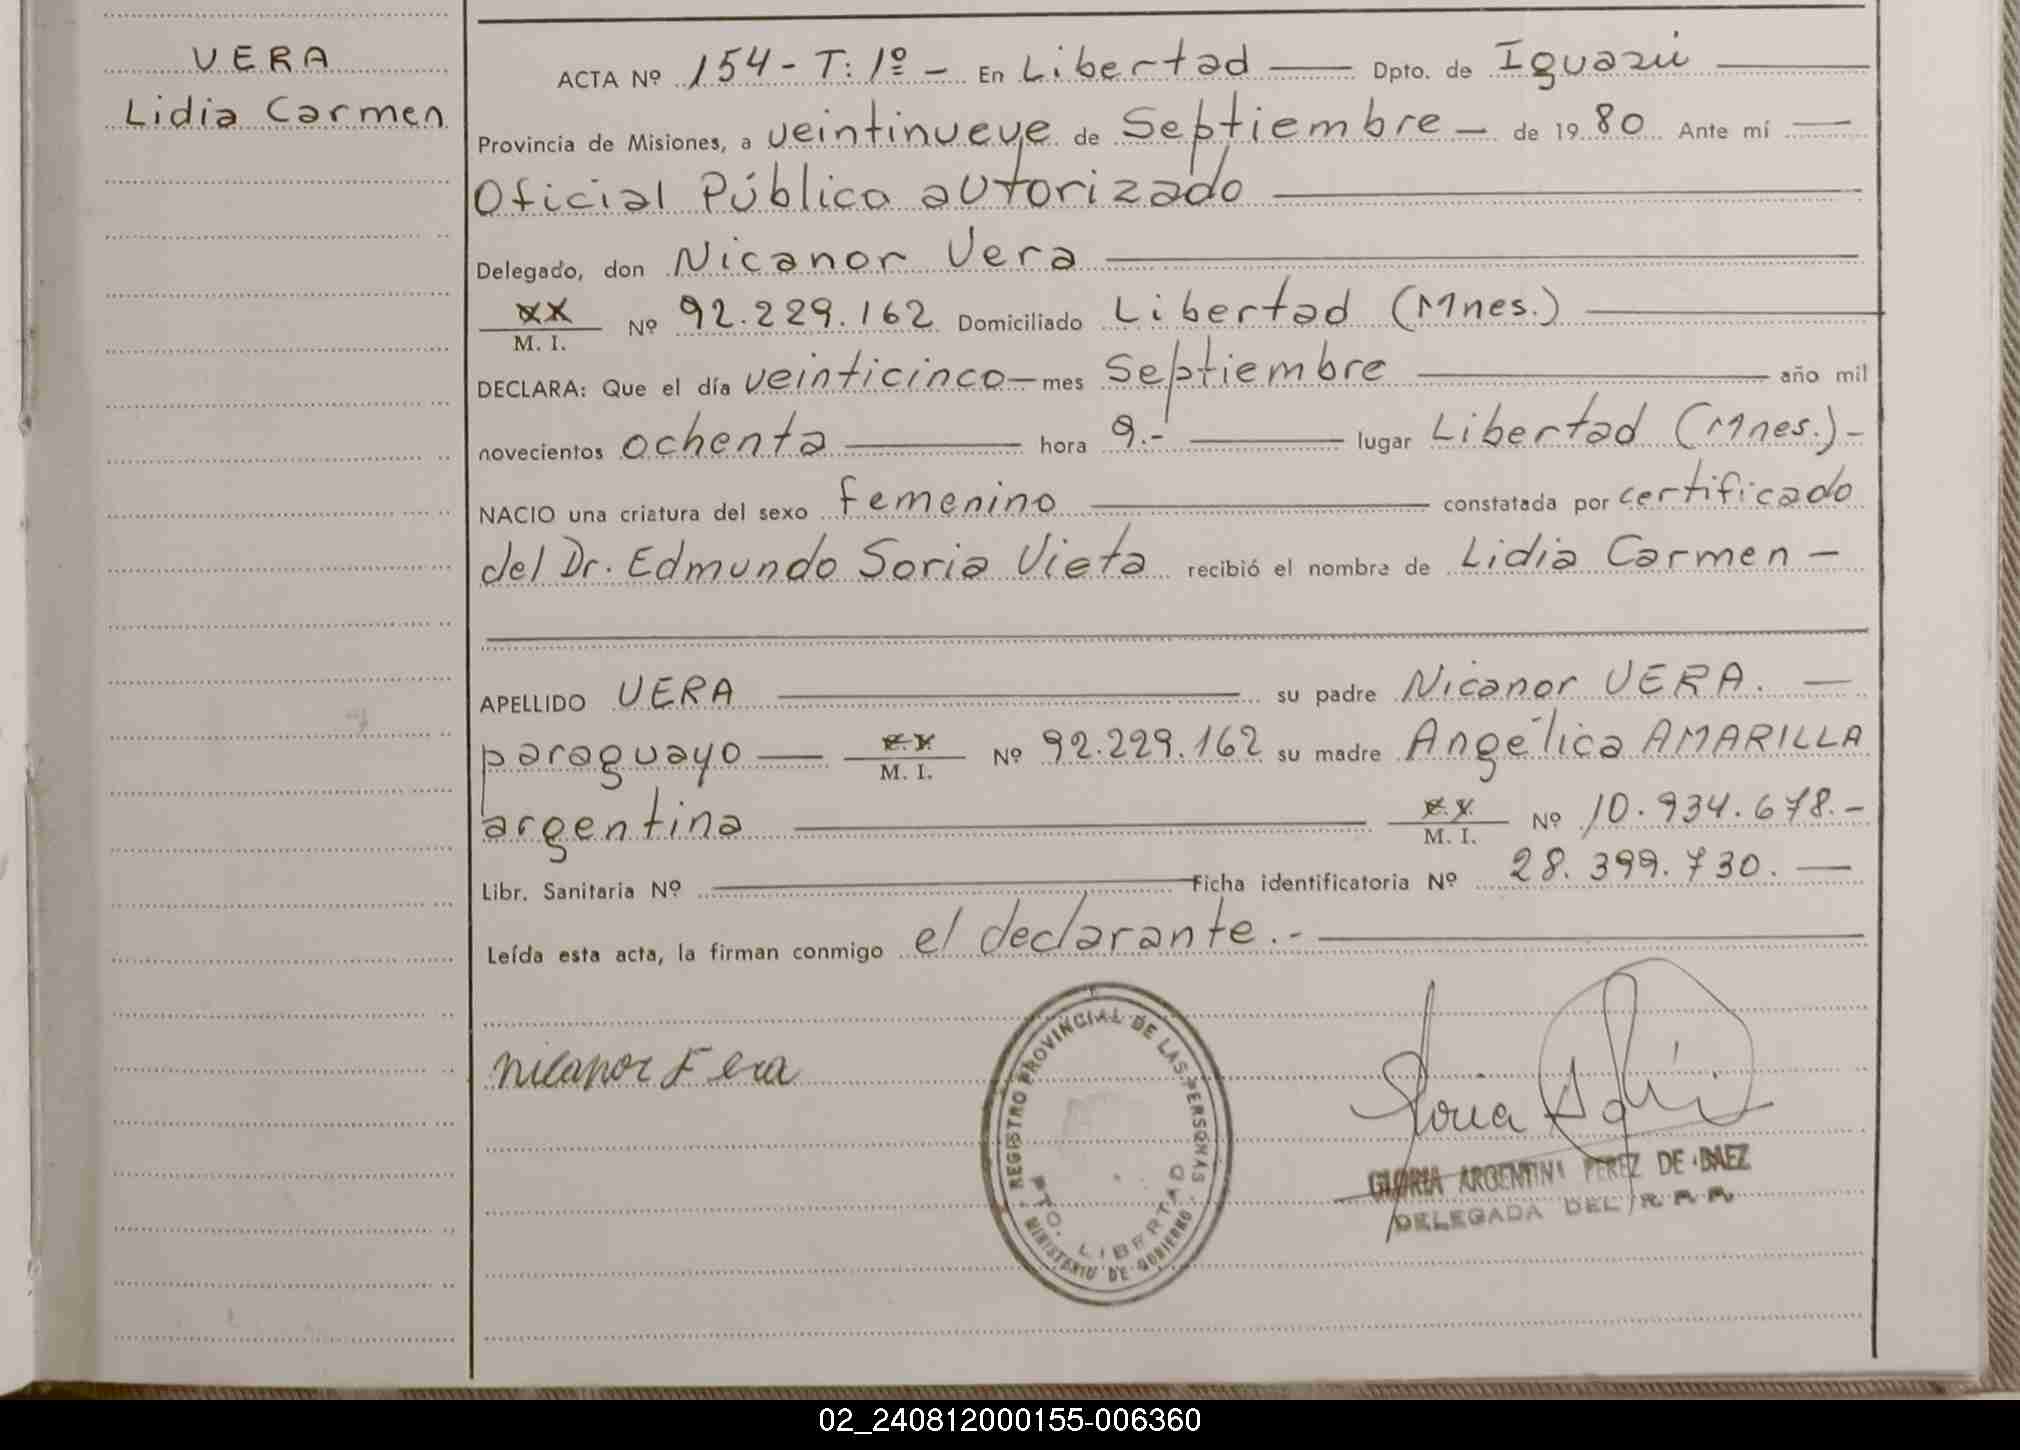 VERA
Lidia Carmen
ACTA Nº 154 - T: 1º - En Libertad Dpto. de Iguazú
Provincia de Misiones, a veintinueve de Septiembre - de 1980 Ante mí
Oficial Público autorizado
Delegado, don Nicanor Vera
xx
M. I. Nº 92.229.162 Domiciliado Libertad (Mnes.)
DECLARA: Que el día veinticinco - mes Septiembre año mil
novecientos ochenta hora 9.- lugar Libertad (Mnes.) -
NACIO una criatura del sexo femenino constatada por certificado
del Dr. Edmundo Soria Vieta recibió el nombre de Lidia Carmen -
APELLIDO VERA su padre Nicanor VERA. -
paraguayo M. I. Nº 92.229.162 su madre Angélica AMARILLA
argentina M. I. Nº 10.934.678.-
Libr. Sanitaria Nº Ficha identificatoria Nº 28.399.730. -
Leída esta acta, la firman conmigo el declarante.-
REGISTRO PROVINCIAL DE LAS PERSONAS
PTO. LIBERTAD
MINISTERIO DE GOBIERNO
Nicanor Vera
GLORIA ARGENTINA PEREZ DE BAEZ
DELEGADA DEL R.P.P.
02_240812000155-006360